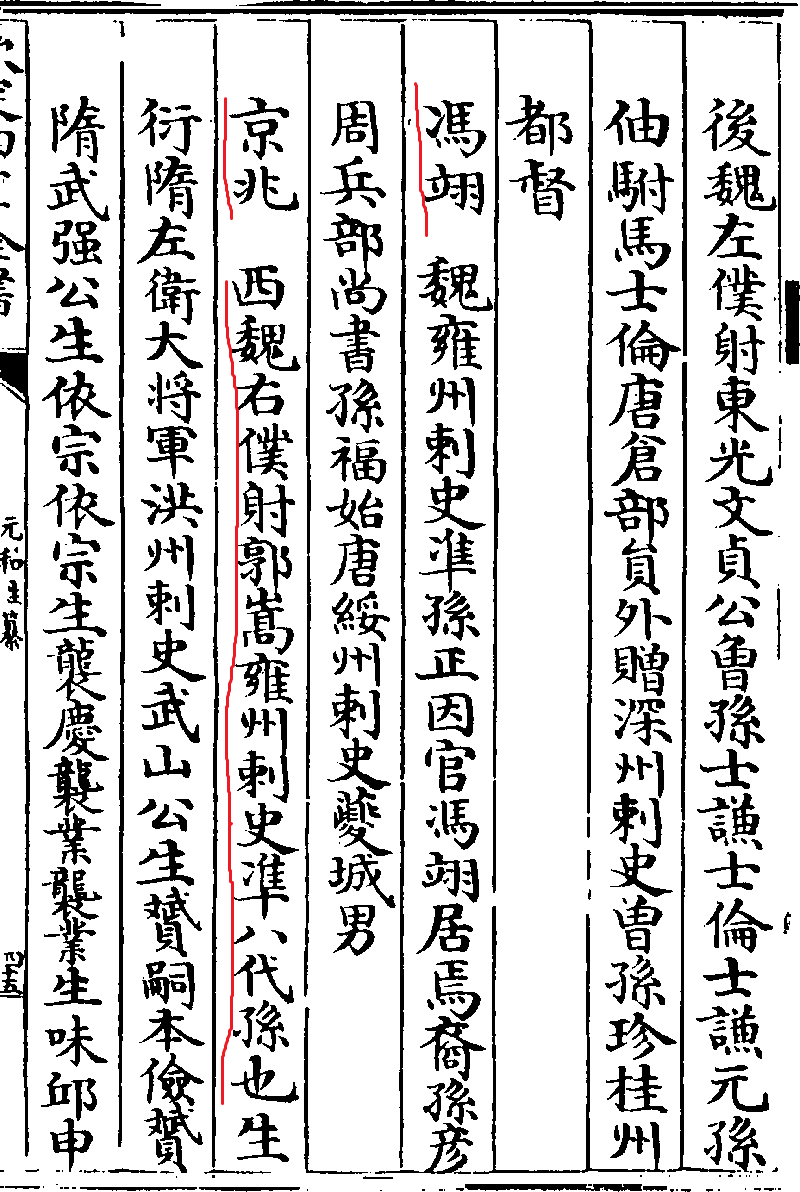 後魏左僕射東光文貞公魯孫士謙士倫士謙元孫
伷駙馬士倫唐倉部員外贈深州刺史曽孫珍桂州
都督
馮翊 魏雍州刺史凖孫正因官馮翊居焉裔孫彦
周兵部尚書孫福始唐綏州刺史夔城男
京兆 西魏右僕射郭嵩雍州刺史凖八代孫也生
衍隋左衛大将軍洪州刺史武山公生贇嗣本儉贇
隋武强公生依宗依宗生襲慶襲業襲業生味邱申
元和姓纂